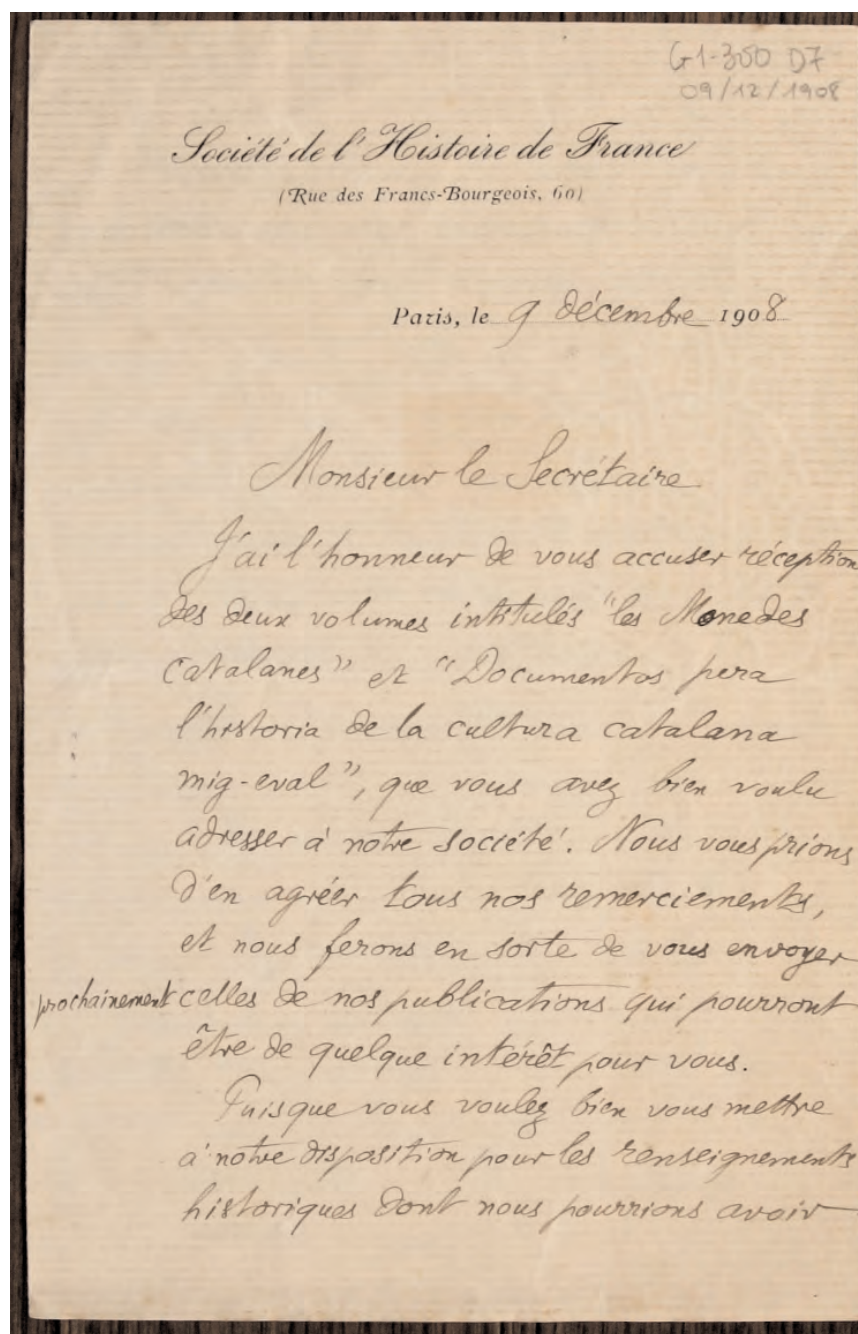 G1-350 D7
09/12/1908
Société de l'Histoire de France
(Rue des Francs-Bourgeois, 60)
Paris, le 9 décembre 1908
Monsieur le Secrétaire
J'ai l'honneur de vous accuser réception
des deux volumes intitulés "les Monedes
Catalanes" et "Documentos pera
l'historia de la cultura catalana
mig-eval", que vous avez bien voulu
adresser à notre société. Nous vous prions
d'en agréer tous nos remerciements,
et nous ferons en sorte de vous envoyer
prochainement celles de nos publications qui pourront
être de quelque intérêt pour vous.
Puisque vous voulez bien vous mettre
à notre disposition pour les renseignements
historiques dont nous pourrions avoir